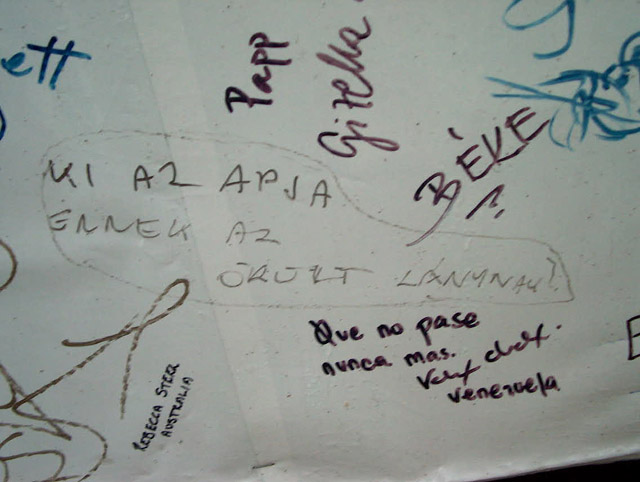 ett
Papp
Gizella
BÉKE
?
KI AZ APJA
ENNEK AZ
ŐRÜLT LÁNYNAK?
Que no pase
nunca mas.
venezuela
REBECCA STEER
AUSTRALIA
E